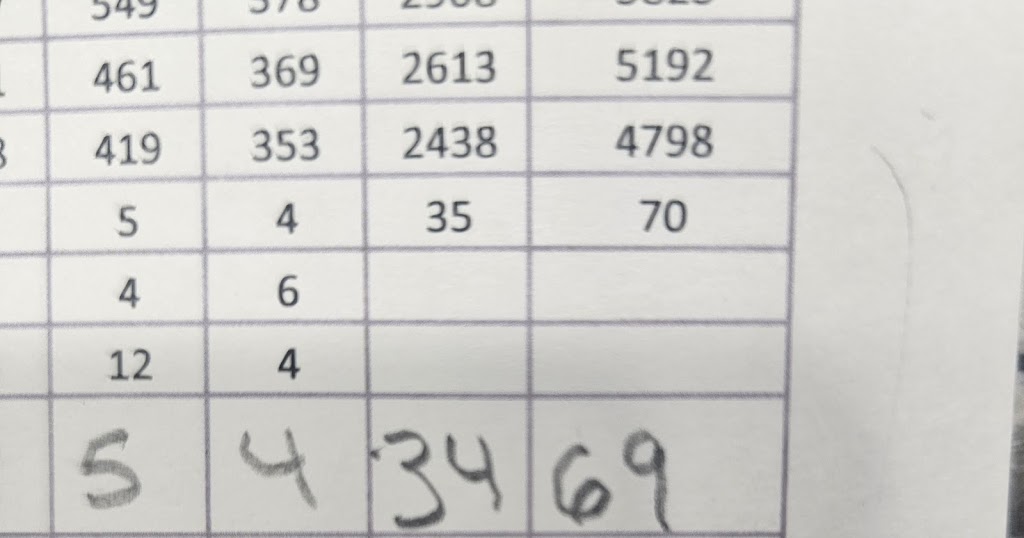 549 378
461 369 2613 5192
419 353 2438 4798
5 4 35 70
4 6
12 4
5 4 34 69